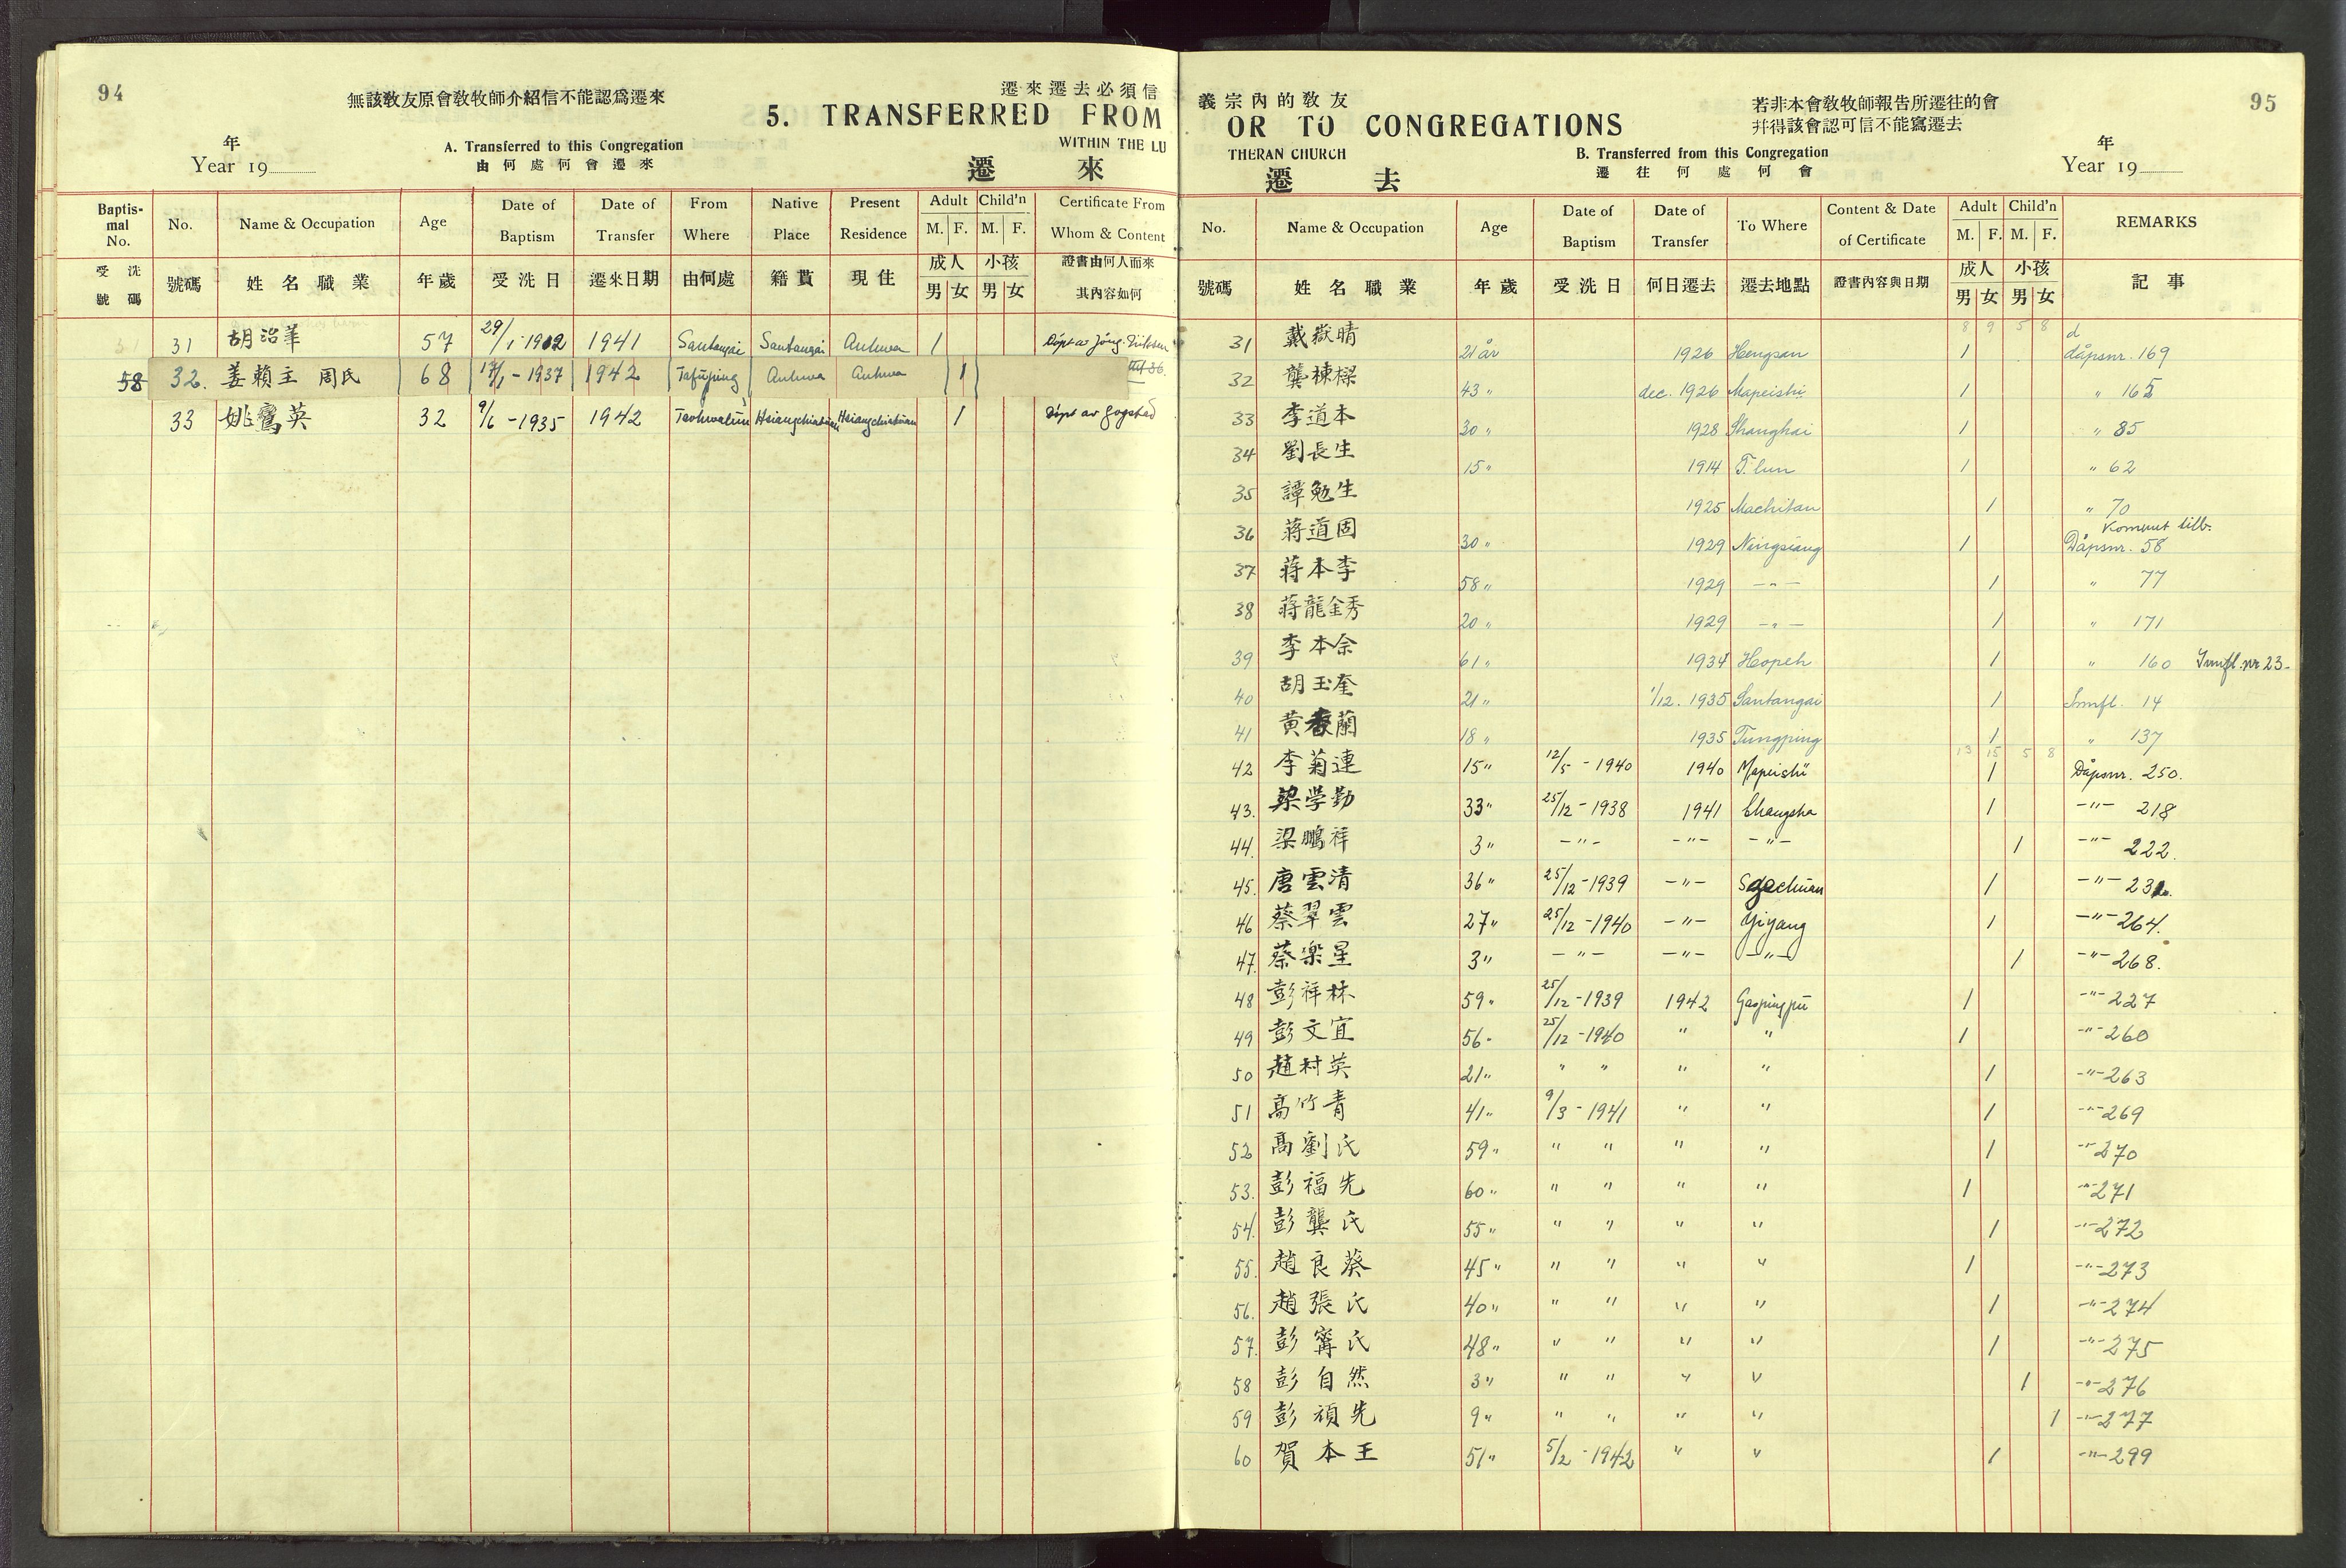 94
無該敎友原會敎牧師介紹信不能認爲遷來
遷來遷去必須信
5. TRANSFERRED FROM
年
Year 19
A. Transferred to this Congregation
由何處何會遷來
WITHIN THE LU
遷 來
Baptismal No. No. Name & Occupation Age Date of Baptism Date of Transfer From Where Native Place Present Residence Adult M. F. Child'n M. F. Certificate From Whom & Content
受洗號碼 號碼 姓名職業 年歲 受洗日 遷來日期 由何處 籍貫 現住 成人 男 女 小孩 男 女 證書由何人而來 其內容如何
31 胡治羊 57 29/1-1912 1941 Santangai Santangai Anhwa 1
58 32. 姜賴主 周氏 68 17/1-1937 1942 Tafuping Anhwa Anhwa 1
33 姚鸞英 32 9/6-1935 1942 Taohwalun Hsiangchiatsuan Hsiangchiatsuan 1 Döpt av Gogstad
95
義宗內的敎友
OR TO CONGREGATIONS
若非本會敎牧師報告所遷往的會
幷得該會認可信不能寫遷去
THERAN CHURCH
遷 去
B. Transferred from this Congregation
遷往何處何會
年
Year 19
No. Name & Occupation Age Date of Baptism Date of Transfer To Where Content & Date of Certificate Adult M. F. Child'n M. F. REMARKS
號碼 姓名職業 年歲 受洗日 何日遷去 遷去地點 證書內容與日期 成人 男 女 小孩 男 女 記事
8 9 5 8
31 戴嶽晴 21 år 1926 Hengsan 1 dåpsnr. 169
32 龔棟樑 43 " dec. 1926 Mapeishi 1 " 165
33 李道本 30 " 1928 Shanghai 1 " 85
34 劉長生 15 " 1914 T. lun 1 " 62
35 譚勉生 1925 Machitan 1 " 70
Kommet tilb.
36 蔣道固 30 " 1929 Ningsiang 1 Dåpsnr. 58
37 蔣本李 58 " 1929 -"- 1 " 77
38 蔣龍金秀 20 " 1929 -"- 1 " 171
39 李本余 61 " 1934 Hopeh 1 " 160 Innfl. nr 23-
40 胡玉奎 21 " 1/12. 1935 Santangai 1 Innfl. 14
41 黄春蘭 18 " 1935 Tungping 1 " 137
13 15 5 8
42 李菊連 15 " 12/5-1940 1940 Mapeishi 1 Dåpsnr. 250.
43. 梁学勤 33 " 25/12-1938 1941 Changsha 1 -"- 218
44. 梁鵬祥 3 " -"- -"- -"- 1 -"- 222.
45. 唐雲清 36 " 25/12-1939 -"- Sgechuan 1 -"-
46 蔡翠雲 27 " 25/12-1940 -"- Yiyang 1 -"- 264.
47. 蔡樂星 3 " -"- -"- -"- 1 -"- 268.
48 彭祥林 59 " 25/12-1939 1942 Gaopingpu 1 -"- 227
49 彭文宜 56 - 25/12-1940 " " 1 -"- 260
50 趙村英 21 " " " " " 1 -"- 263
51 高竹青 41 " 9/3-1941 " " 1 -"- 269
52 高劉氏 59 " " " " " 1 -"- 270
53. 彭福先 60 " " " " " 1 -"- 271
54. 彭龔氏 55 " " " " " 1 -"- 272
55. 趙良葵 45 " " " " " 1 -"- 273
56. 趙張氏 40 " " " " " 1 -"- 274
57. 彭甯氏 48 " " " " " 1 -"- 275
58 彭自然 3 " " " " " 1 -"- 276
59 彭禎先 9 " " " " " 1 -"- 277
60 賀本王 51 " 5/2-1942 " " 1 -"- 299